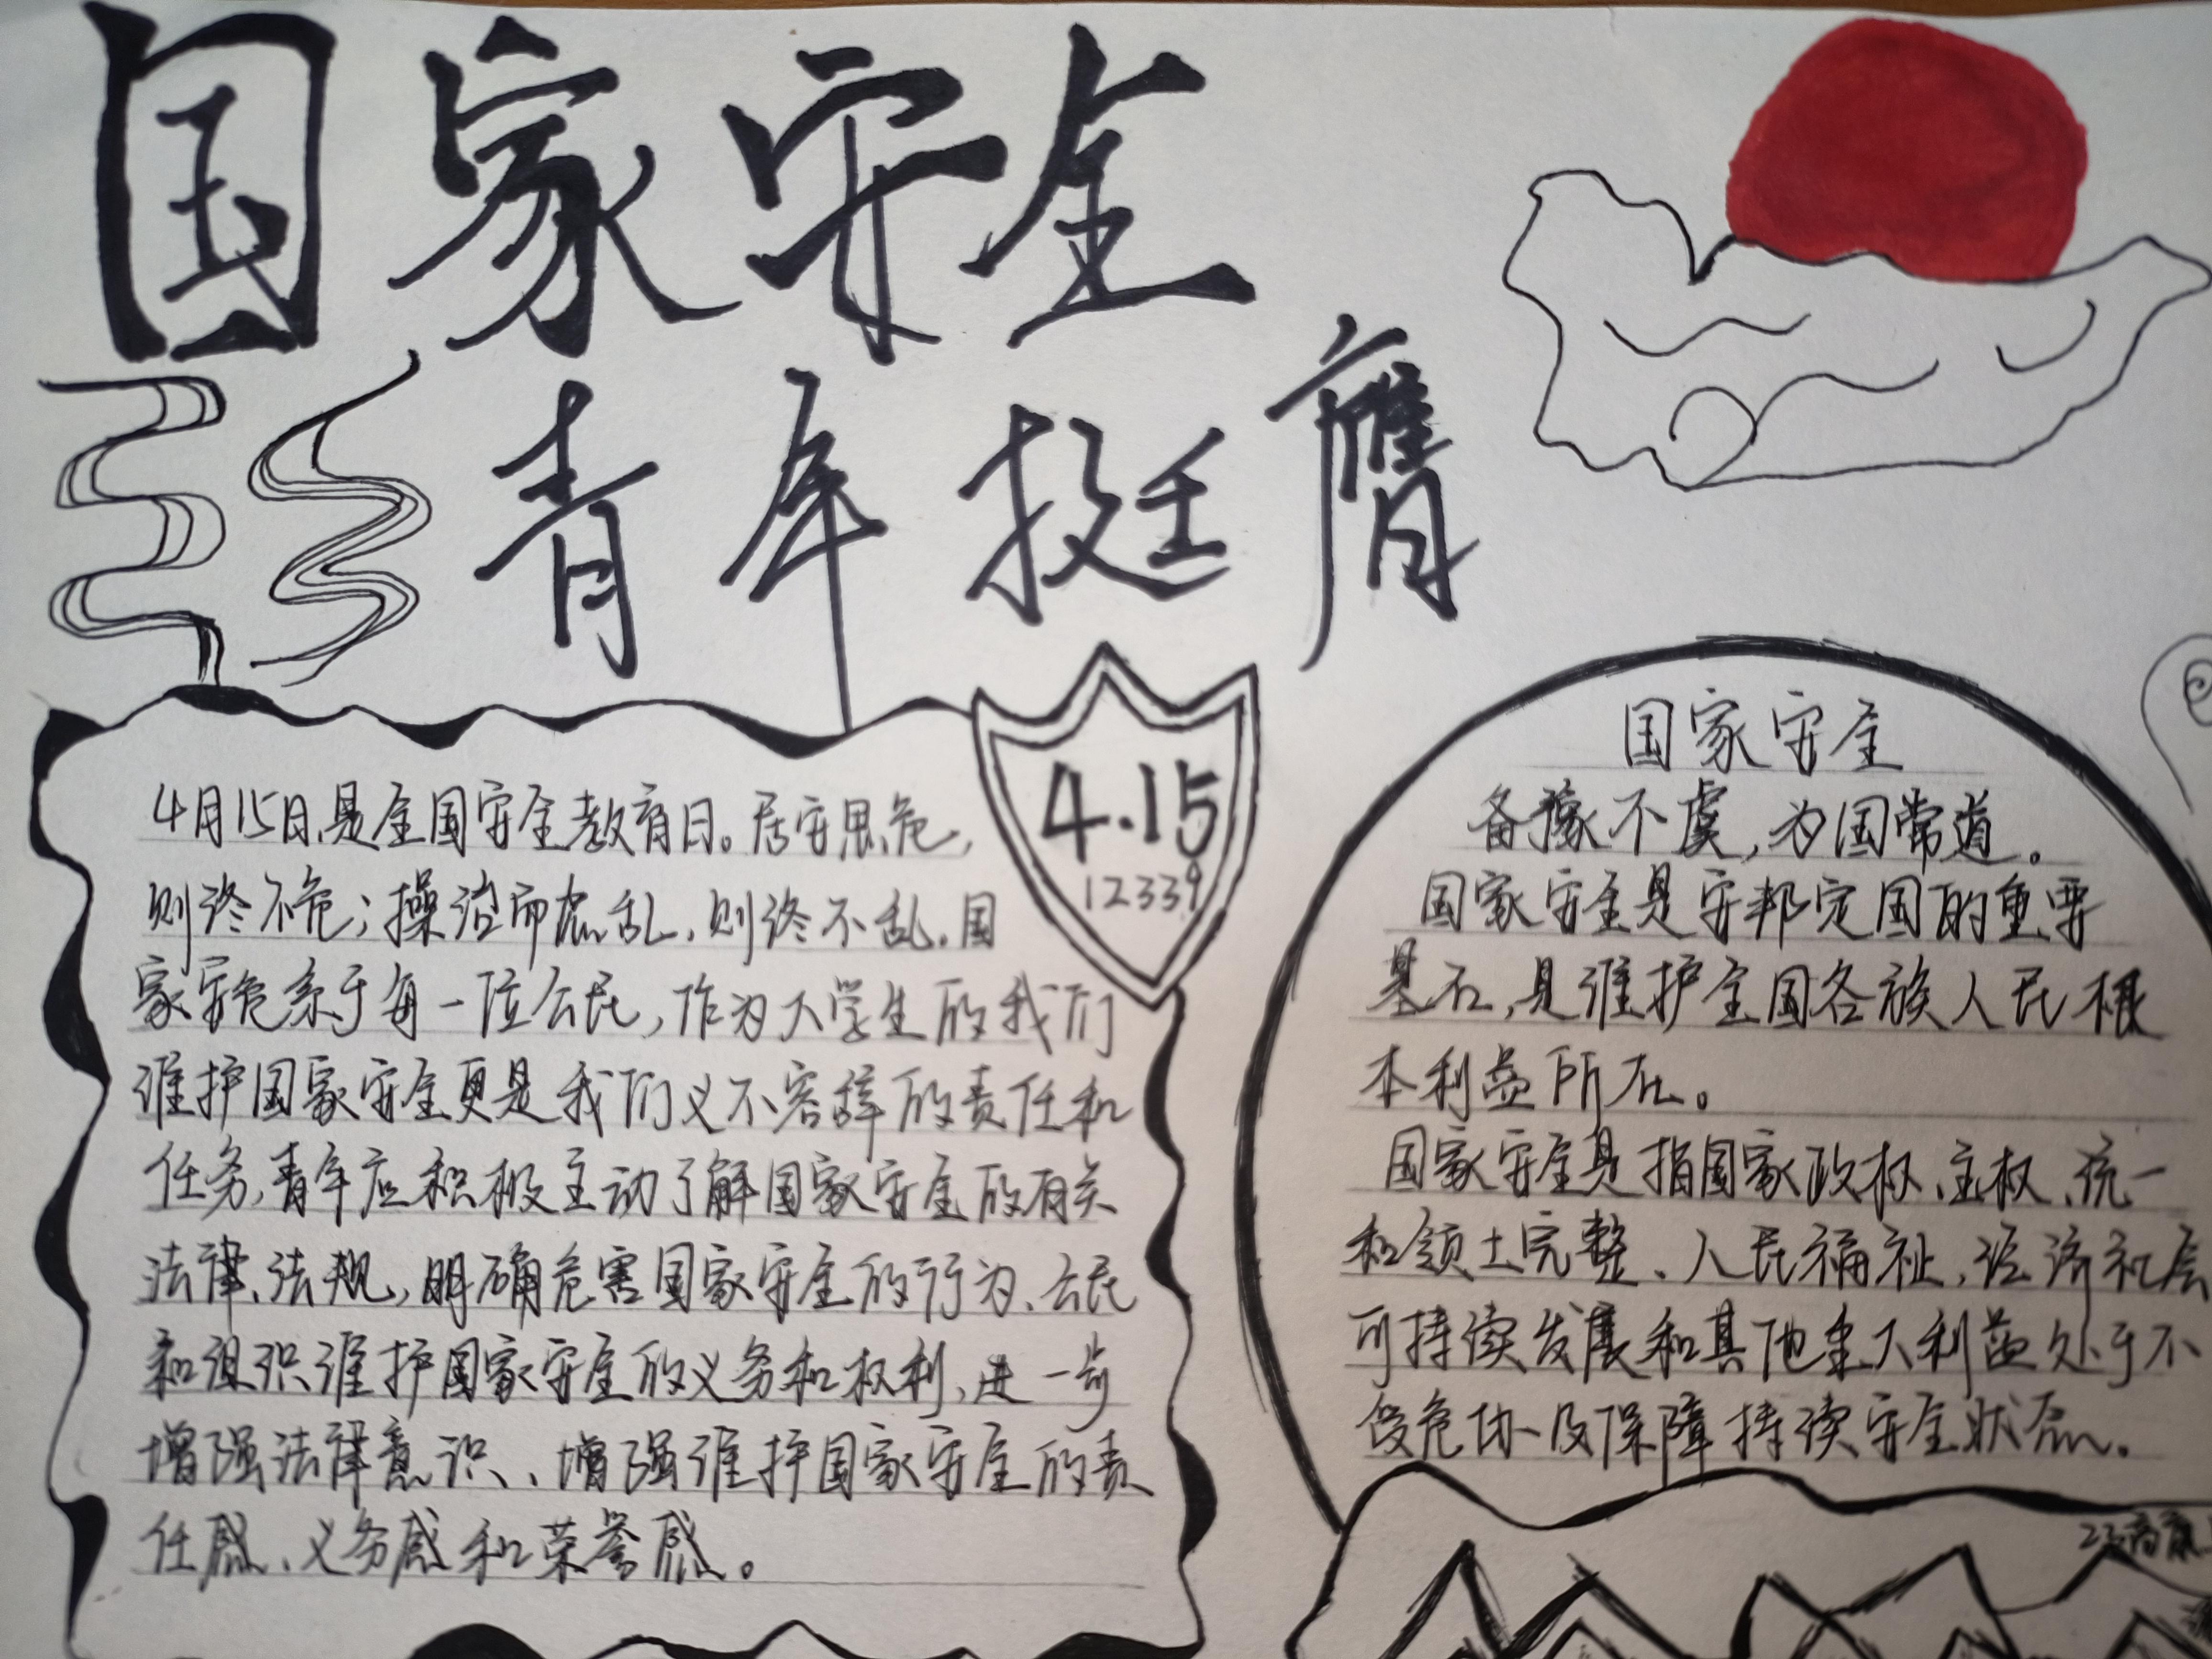 国家安全
青年挺膺
4.15
12339
4月15日,是全国安全教育日。居安思危,
则终不危;操治而虑乱,则终不乱。国
家安危系于每一位公民,作为大学生的我们
维护国家安全更是我们义不容辞的责任和
任务,青年应积极主动了解国家安全的有关
法律、法规,明确危害国家安全的行为、公民
和组织维护国家安全的义务和权利,进一步
增强法律意识、增强维护国家安全的责
任感、义务感和荣誉感。
国家安全
备豫不虞,为国常道。
国家安全是安邦定国的重要
基石,是维护全国各族人民根
本利益所在。
国家安全是指国家政权、主权、统一
和领土完整、人民福祉,经济和层
可持续发展和其他重大利益处于不
受危协及保障持续安全状态。